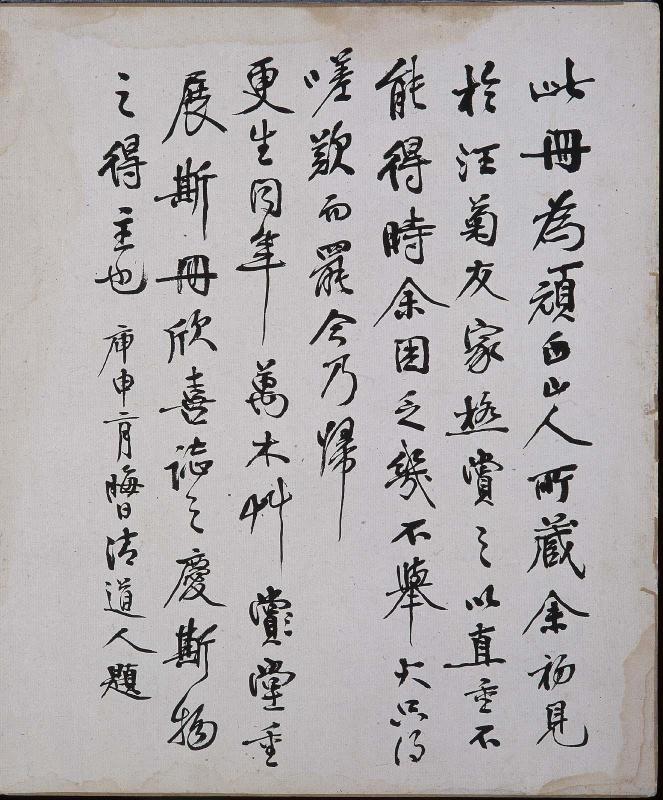 此冊為頑白山人所蔵余初見
於汪菊友家極賞之以直重不
能得時余困乏幾不舉火只得
嗟歎而罷今乃歸
更生同年 萬木艸 堂重
展斯冊欣喜誌之慶斯物
之得主也 庚申二月晦日清道人題